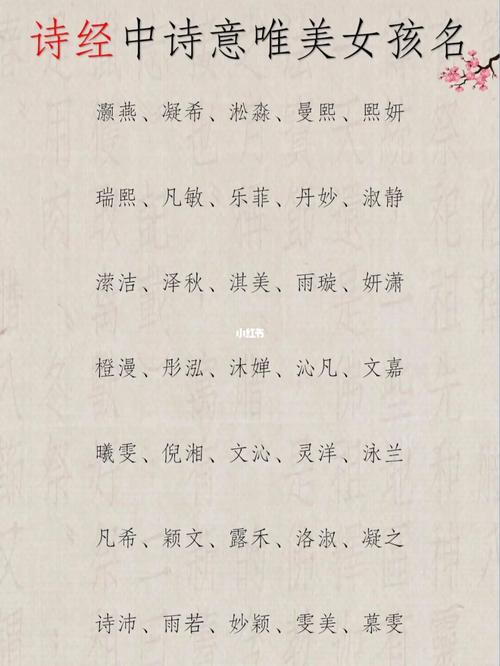 诗经中诗意唯美女孩名
灏燕、凝希、淞淼、曼熙、熙妍
瑞熙、凡敏、乐菲、丹妙、淑静
潆洁、泽秋、淇美、雨璇、妍潇
小红书
橙漫、彤泓、沐婵、沁凡、文嘉
曦雯、倪湘、文沁、灵洋、泳兰
凡希、颖文、露禾、洛淑、凝之
诗沛、雨若、妙颖、雯美、慕雯